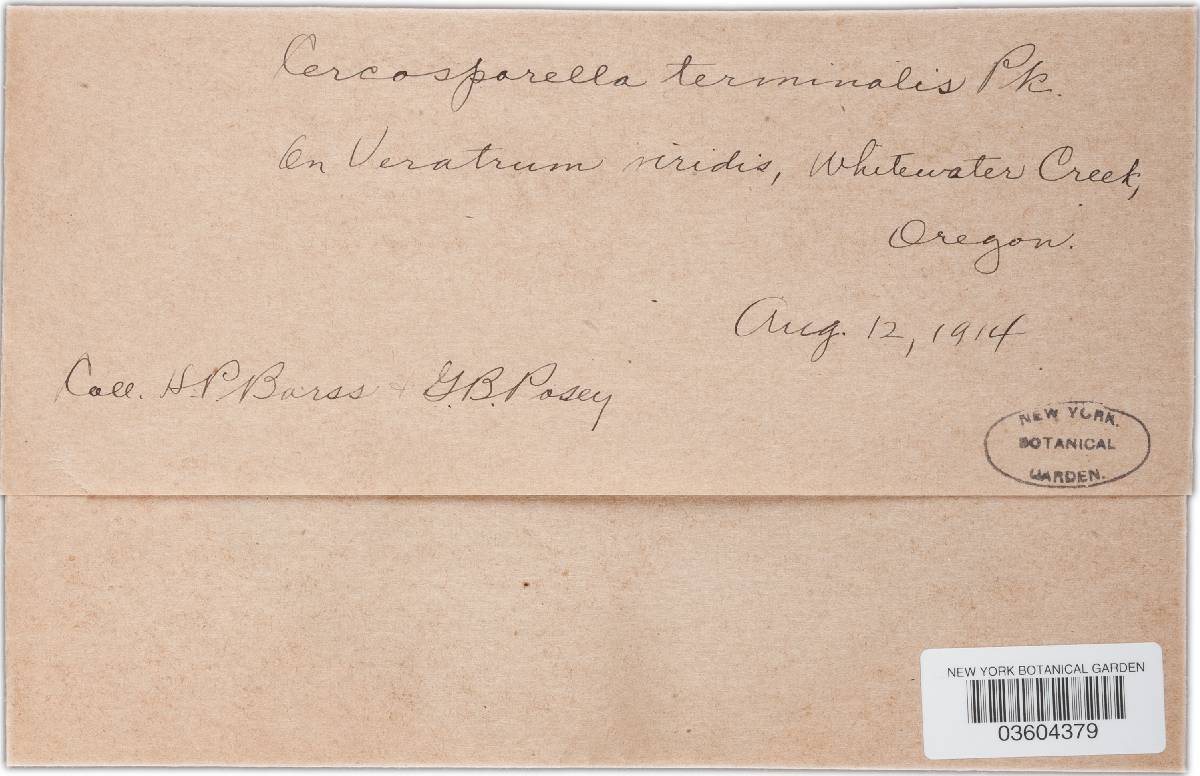 Cercosporella terminalis Pk.
On Veratrum viridis, Whitewater Creek,
Oregon.
Aug. 12, 1914
Coll. H.P. Barss + G.B. Posey
NEW YORK
BOTANICAL
GARDEN.
NEW YORK BOTANICAL GARDEN
03604379